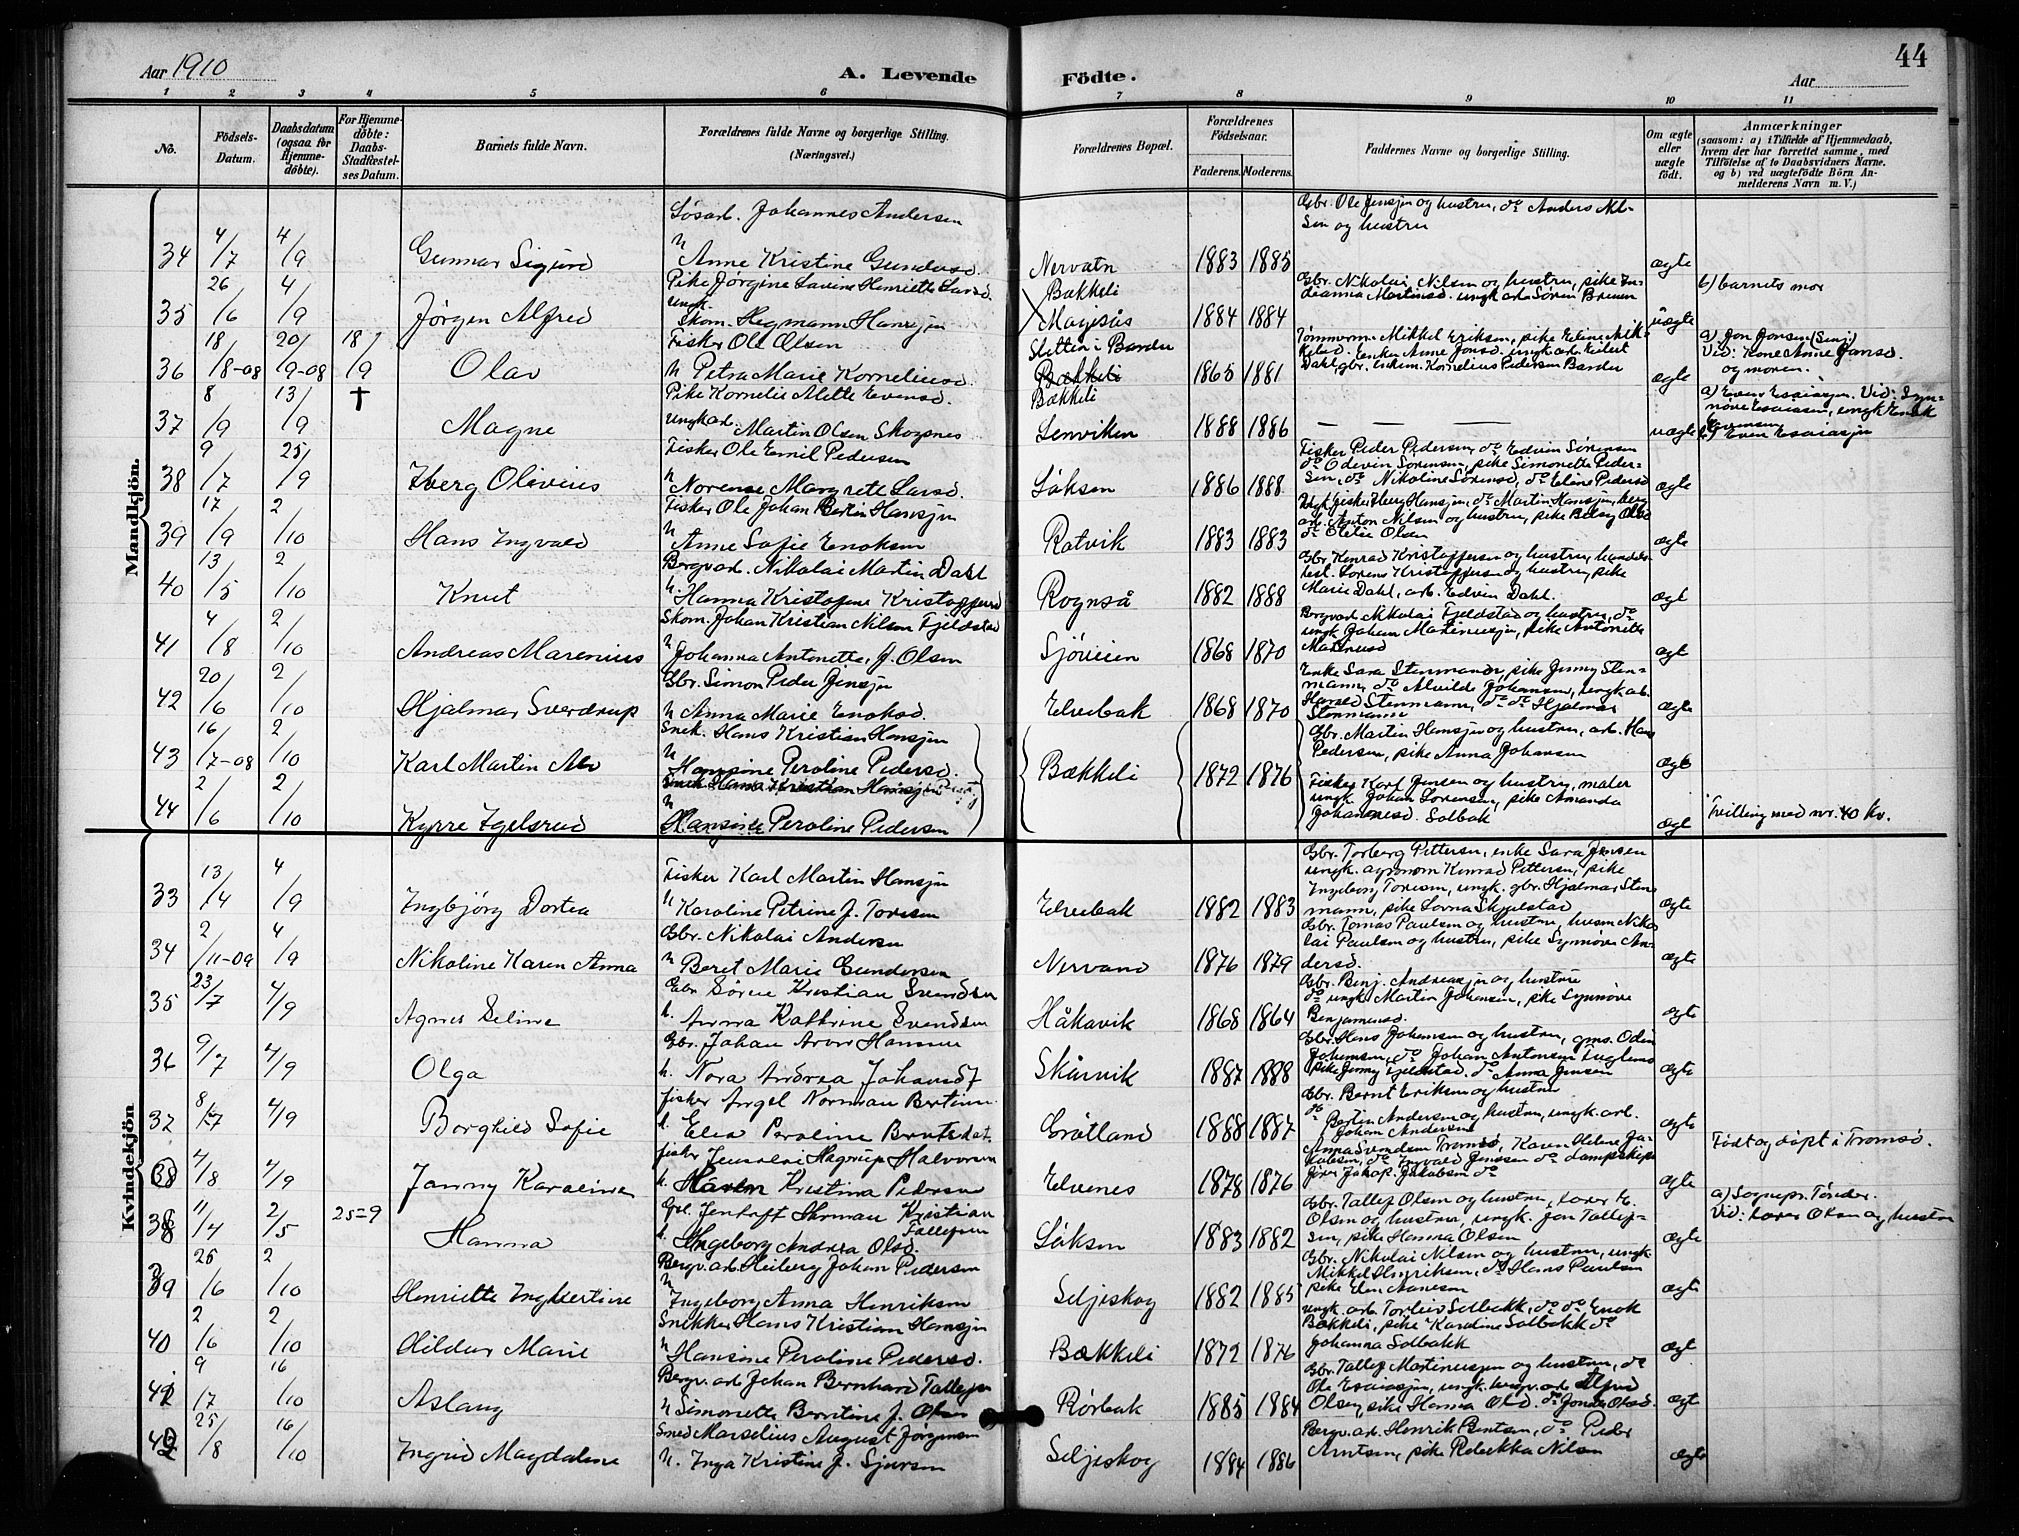 Aar 1910
A. Levende Födte.
Aar
44
1 2 3 4 5 6 7 8 9 10 11
No.
Födsels-Datum.
Daabsdatum (ogsaa for Hjemmedöbte).
For Hjemmedöbte: Daabs-Stadfæstelses Datum.
Barnets fulde Navn.
Forældrenes fulde Navne og borgerlige Stilling.
(Næringsvei.)
Forældrenes Bopæl.
Forældrenes Födselsaar.
Faderens. Moderens.
Faddernes Navne og borgerlige Stilling.
Om ægte eller uægte födt.
Anmærkninger
(saasom: a) i Tilfælde af Hjemmedaab, hvem der har forrettet samme, med Tilföielse af to Daabsvidners Navne. og b) ved uægtefödte Börn Anmelderens Navn m. V.)
Mandkjön.
34 4/7 4/9 Gunnar Sigurd
Løsarb. Johannes Andersen
h Anne Kristine Gundersd.
Nervatn 1883 1885
Gbr. Ole Jensen og hustru, do Anders Nilsen og hustru
ægte
35 26/6 4/9 Jörgen Alfred
Pike Jørgine Lovise Henriette Larsd.
ungk. Skom. Hegmann Hansen
Bækkeli
Magesås 1884 1884
Gbr. Nikolai Nilsen og hustru, pike
ungk. arb. Søren
uægte
b) barnets mor
36 18/8-08 20/9-08 18/9 Olav
Fisker Ole Olsen
h Petra Marie Korneliusd.
Sletten i Bardu
Bækkeli 1865 1881
Tömmerm. Mikkel Eriksen, pike Eline Mikkelsd. Enke Anne Jonsd. ungk. arb. Eilert Dahl, gbr. Kornelius Pedersen Bardu
ægte
a) Jon Jonsen
Vid: Kone Anne Jonsd. og moren.
37 8/9 13/9 † Magne
Pike Kornelie Mette Evensd.
ungk. arb. Martin Olsen Skogsnes
Bækkeli
Lenviken 1888 1886
— — —
uægte
a) Even Esaiassen. Vid: Synnøve Esaiassen, ungk Enok Evensen
b) Even Esaiassen
38 9/7 25/9 Iberg Olivius
Fisker Ole Emil Pedersen
h Norense Margrete Larsd.
Låksen 1886 1888
Fisker Peder Pedersen, do Edvin Sørensen do Odevin Sørensen, pike Simonette Pedersen, do Nikoline Sörensd, do Eline Pedersd
ægte
39 17/9 2/10 Hans Ingvald
Fisker Ole Johan Bertin Hansen
h Anne Sofie Enoksen
Ratvik 1883 1883
Ungk. fisker Iberg Hansen, do Martin Hansen, berg arb. Anton Nilsen og hustru, pike Betsy Olsd do Olette Olsen
ægte
40 13/5 2/10 Knut
Bergv. arb. Nikolai Martin Dahl
h. Hanna Kristofine Kristoffersd
Rognså 1882 1888
Gbr. Konrad Kristoffersen og hustru, handelsbest. Lorens Kristoffersen og hustru, pike Marie Dahl, arb. Edvin Dahl.
ægt
41 4/8 2/10 Andreas Marenius
Skom. Johan Kristian Nilsen Fjeldstad
h Johanna Antonette f. Olsen
Sjöveien 1868 1870
Bergv. arb. Nikolai Fjeldstad og hustru, do ungk Johan Martinussen, pike Antonette Martinusd
ægt
42 20/6 2/10 Hjalmar Sverdrup
Gbr. Simon Peder Jensen
h Anna Marie Enoksd.
Elvebak 1868 1870
Enke Sara Stenmann, pike Jenny Stenmann, do Alvilde Johansen, ungk. arb. Harald Stenmann, do do Hjalmar Stenmann
ægte
43 16/7-08 2/10 Karl Martin Alv
Snek. Hans Kristian Hansen
h Hansine Peroline Pedersd.
Bækkeli 1872 1876
Gbr. Martin Hansen og hustru, arb. Hans Pedersen, pike Anna Johansen
ægte
44 2/6 2/10 Kyrre Egelsrud
Snek Hans Kristian Hansen
h Hansine Peroline Pedersen
Fisker Karl Jensen og hustru, maler ungk. Johan Sorensen, pike Amanda Johannesd. Solbak
ægt
Tvilling med nr. 40 Kv.
Kvindekjön
33 13/4 4/9 Ingbjörg Dortea
Fisker Karl Martin Hansen
h Karoline Petrine f. Toresen
Elvebak 1882 1883
Gbr. Torberg Pettersen, enke Sara Jensen ungk. agronom Konrad Pettersen, pike Ingeborg Toresen, ungk. gbr. Hjalmar Stenmann, pike Lovna Skjelstad
ægte
34 2/11-09 4/9 Nikoline Karen Anna
Gbr. Nikolai Andersen
h Beret Marie Gundersen
Nervand 1876 1879
Gbr. Tomas Paulsen og hustru, husm Nikolai Paulsen og hustru, pike Synnöve Andersd.
ægte
35 23/7 4/9 Agnes Seline
Gbr Sören Kristian Svendsen
h. Anna Kathrine Svendsen
Håkavik 1868 1864
Gbr. Benj. Andreassen og hustru do ungk Martin Johansen, pike Synnöve Benjaminsd.
ægte
36 9/7 4/9 Olga
Gbr. Johan Arov Hansen
h. Nora Andrea Johansd
Skårvik 1887 1888
Gbr. Hans Johansen og hustru, gms. Odin Johansen, do Johan Antonsen Fuglenes pike Jenny Fjeldstad, do Anna Jensen
ægte
37 8/7 4/9 Borghild Sofie
fisker Angel Norman Bertinu.
h. Elea Peroline Berntsdat.
Gråtland 1888 1887
Gbr. Bernt Eriksen og hustru do Bertin Andersen og hustru, ungk. arb. Johan Andersen
ægte
38 4/8 4/9 Janny Karoline
fisker Jensalai Hagerup Halvorsen
h. Maren Kristina Pedersen
Elvenes 1878 1876
Anna Svendsen Tromsø, Karen Oldine Jakobsen, do Ingvald Jenssen do Lampskips fører Jakop Jakobsen do
ægte
Født og døpt i Tromsø.
38 11/4 2/5 25-9 Hanna
Gbr. Jentoft Herman Kristian Tallefsen
h. Ingeborg Andrea Olsd.
Låksen 1883 1882
Gbr. Tallef Olsen og hustru, Lorer E. Olsen og hustru, ungk. Jon Tallefsen, pike Hanna Olsen
ægte
a) Sognepr. Tönder.
Vid: Lorer Olsen og hustru
39 25/6 2/10 Henriette Ingbertine
Bergv. arb Heiberg Johan Pedersen
h Ingeborg Anna Henriksen
Seljeskog 1882 1885
Gbr. Nikolai Nilsen og hustru, ungk. Mikkel Henriksen, do Hans Paulsen pike Elen Hansen
ægte
40 2/6 2/10 Hildur Marie
Snekker Hans Kristian Hansen
h Hansine Peroline Pedersd.
Bækkeli 1872 1876
ungk. arb. Torleiv Solbakk, do do Enok Bækkeli, pike Karoline Solbakk do Johanna Solbakk
ægt
41 9/7 16/10 Aslaug
Bergv. arb Johan Bernhard Tallefsen
h Simonette Berntine f. Olsen
Rörbak 1885 1884
Gbr. Tallef Martinussen og hustru, do Ole Esaiassen, ungk. bergv. arb. Alfred Olsen, pike Hanna Olsd. do Olsd.
ægt
42 25/8 16/10 Ingrid Magdalene
Smed Marselius August Jörgensen
h. Inga Kristine f. Sjursen
Seljeskog 1884 1886
Bergv. arb. Henrik Bentsen, do Peder Arntsen, pike Rebekka Nilsen
ægte